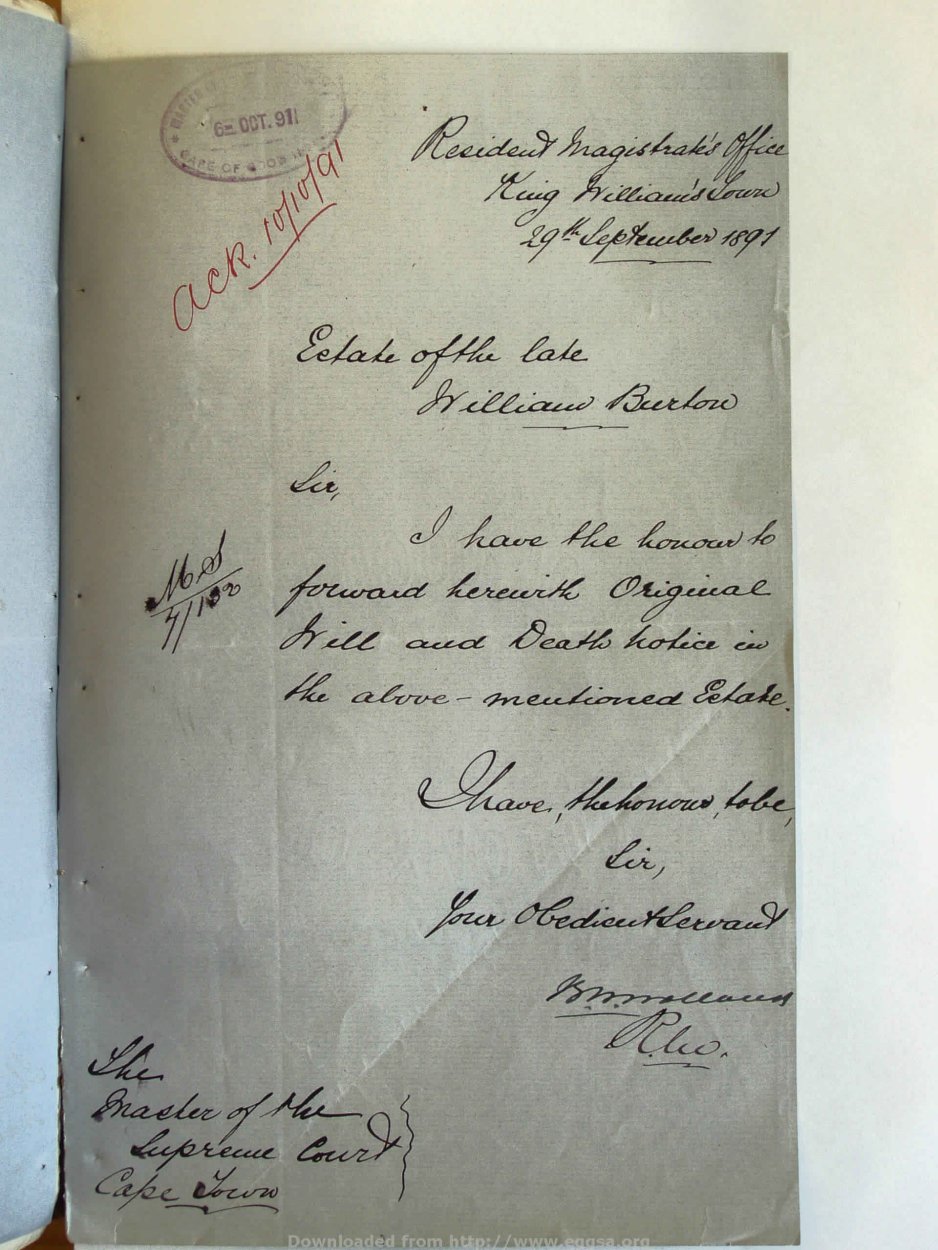 MASTER
6- OCT. 91
CAPE OF GOOD
ack. 10/10/91
Resident Magistrate's Office
King William's Town
29th September 1891
Estate of the late
William Burton
Sir,
I have the honour to
forward herewith Original
Will and Death Notice in
the above-mentioned Estate.
I have, the honour, to be,
Sir,
Your Obedient Servant
R.M.
The
Master of the
Supreme Court
Cape Town
Downloaded from http://www.eggsa.org